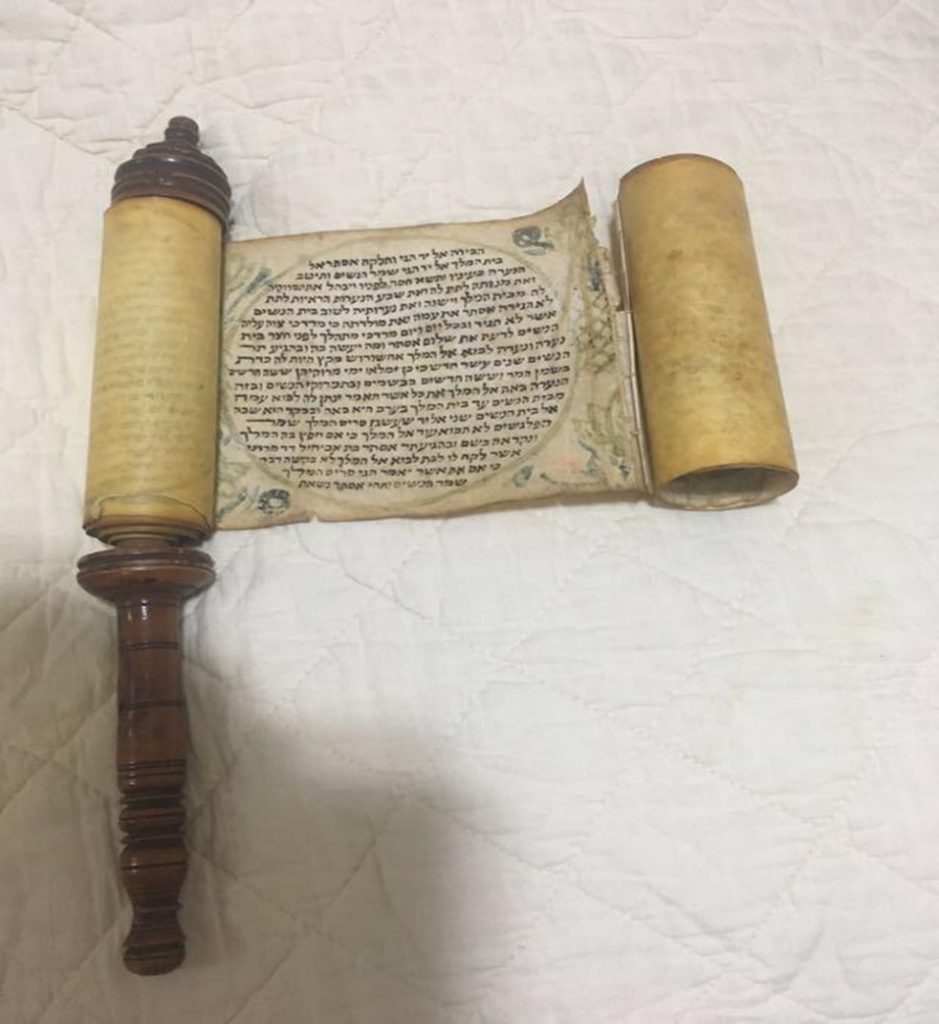 הבירה אל יד הגי ותלקח אסתר אל
בית המלך אל יד הגי שמר הנשים ותיטב
הנערה בעיניו ותשא חסד לפניו ויבהל את תמרוקיה
ואת מנותה לתת לה ואת שבע הנערות הראיות לתת
לה מבית המלך וישנה ואת נערותיה לטוב בית הנשים
לא הגידה אסתר את עמה ואת מולדתה כי מרדכי צוה עליה
אשר לא תגיד ובכל יום ויום מרדכי מתהלך לפני חצר בית
הנשים לדעת את שלום אסתר ומה יעשה בה ובהגיע תר
נערה ונערה לבוא אל המלך אחשורוש מקץ היות לה כדת
הנשים שנים עשר חדש כי כן ימלאו ימי מרוקיהן ששה חדשים
בשמן המר וששה חדשים בבשמים ובתמרוקי הנשים ובזה
הנערה באה אל המלך את כל אשר תאמר ינתן לה לבוא עמה
מבית הנשים עד בית המלך בערב היא באה ובבקר היא שבה
אל בית הנשים שני אל יד שעשגז סריס המלך שמר
הפלגשים לא תבוא עוד אל המלך כי אם חפץ בה המלך
ונקראה בשם ובהגיע תר אסתר בת אביחיל דד מרדכי
אשר לקח לו לבת לבוא אל המלך לא בקשה דבר
כי אם את אשר יאמר הגי סריס המלך
שמר הנשים ותהי אסתר נשאת